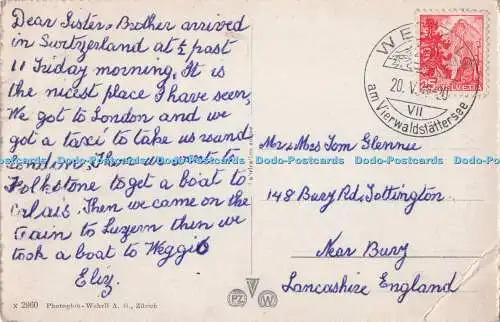 Dear Sister & Brother arrived
in Switzerland at ½ past
11 Friday morning. It is
the nicest place I have seen,
We got to London and we
got a taxi to take us round
London. Then we went to
Folkstone to get a boat to
Calais. Then we came on the
train to Luzern then we
took a boat to Weggis
Eliz.
Mr & Mrs Tom Glennie
148 Bury Rd, Tottington
Near Bury
Lancashire England
WE
20. V.
20
VII
am Vierwaldstättersee
25 HELVETIA
X 2960 Photoglob-Wehrli A. G., Zürich
PZ W
Dodo-Postcards Dodo-Postcards Dodo-Postcards Dodo-Postcards Dodo-Postcards